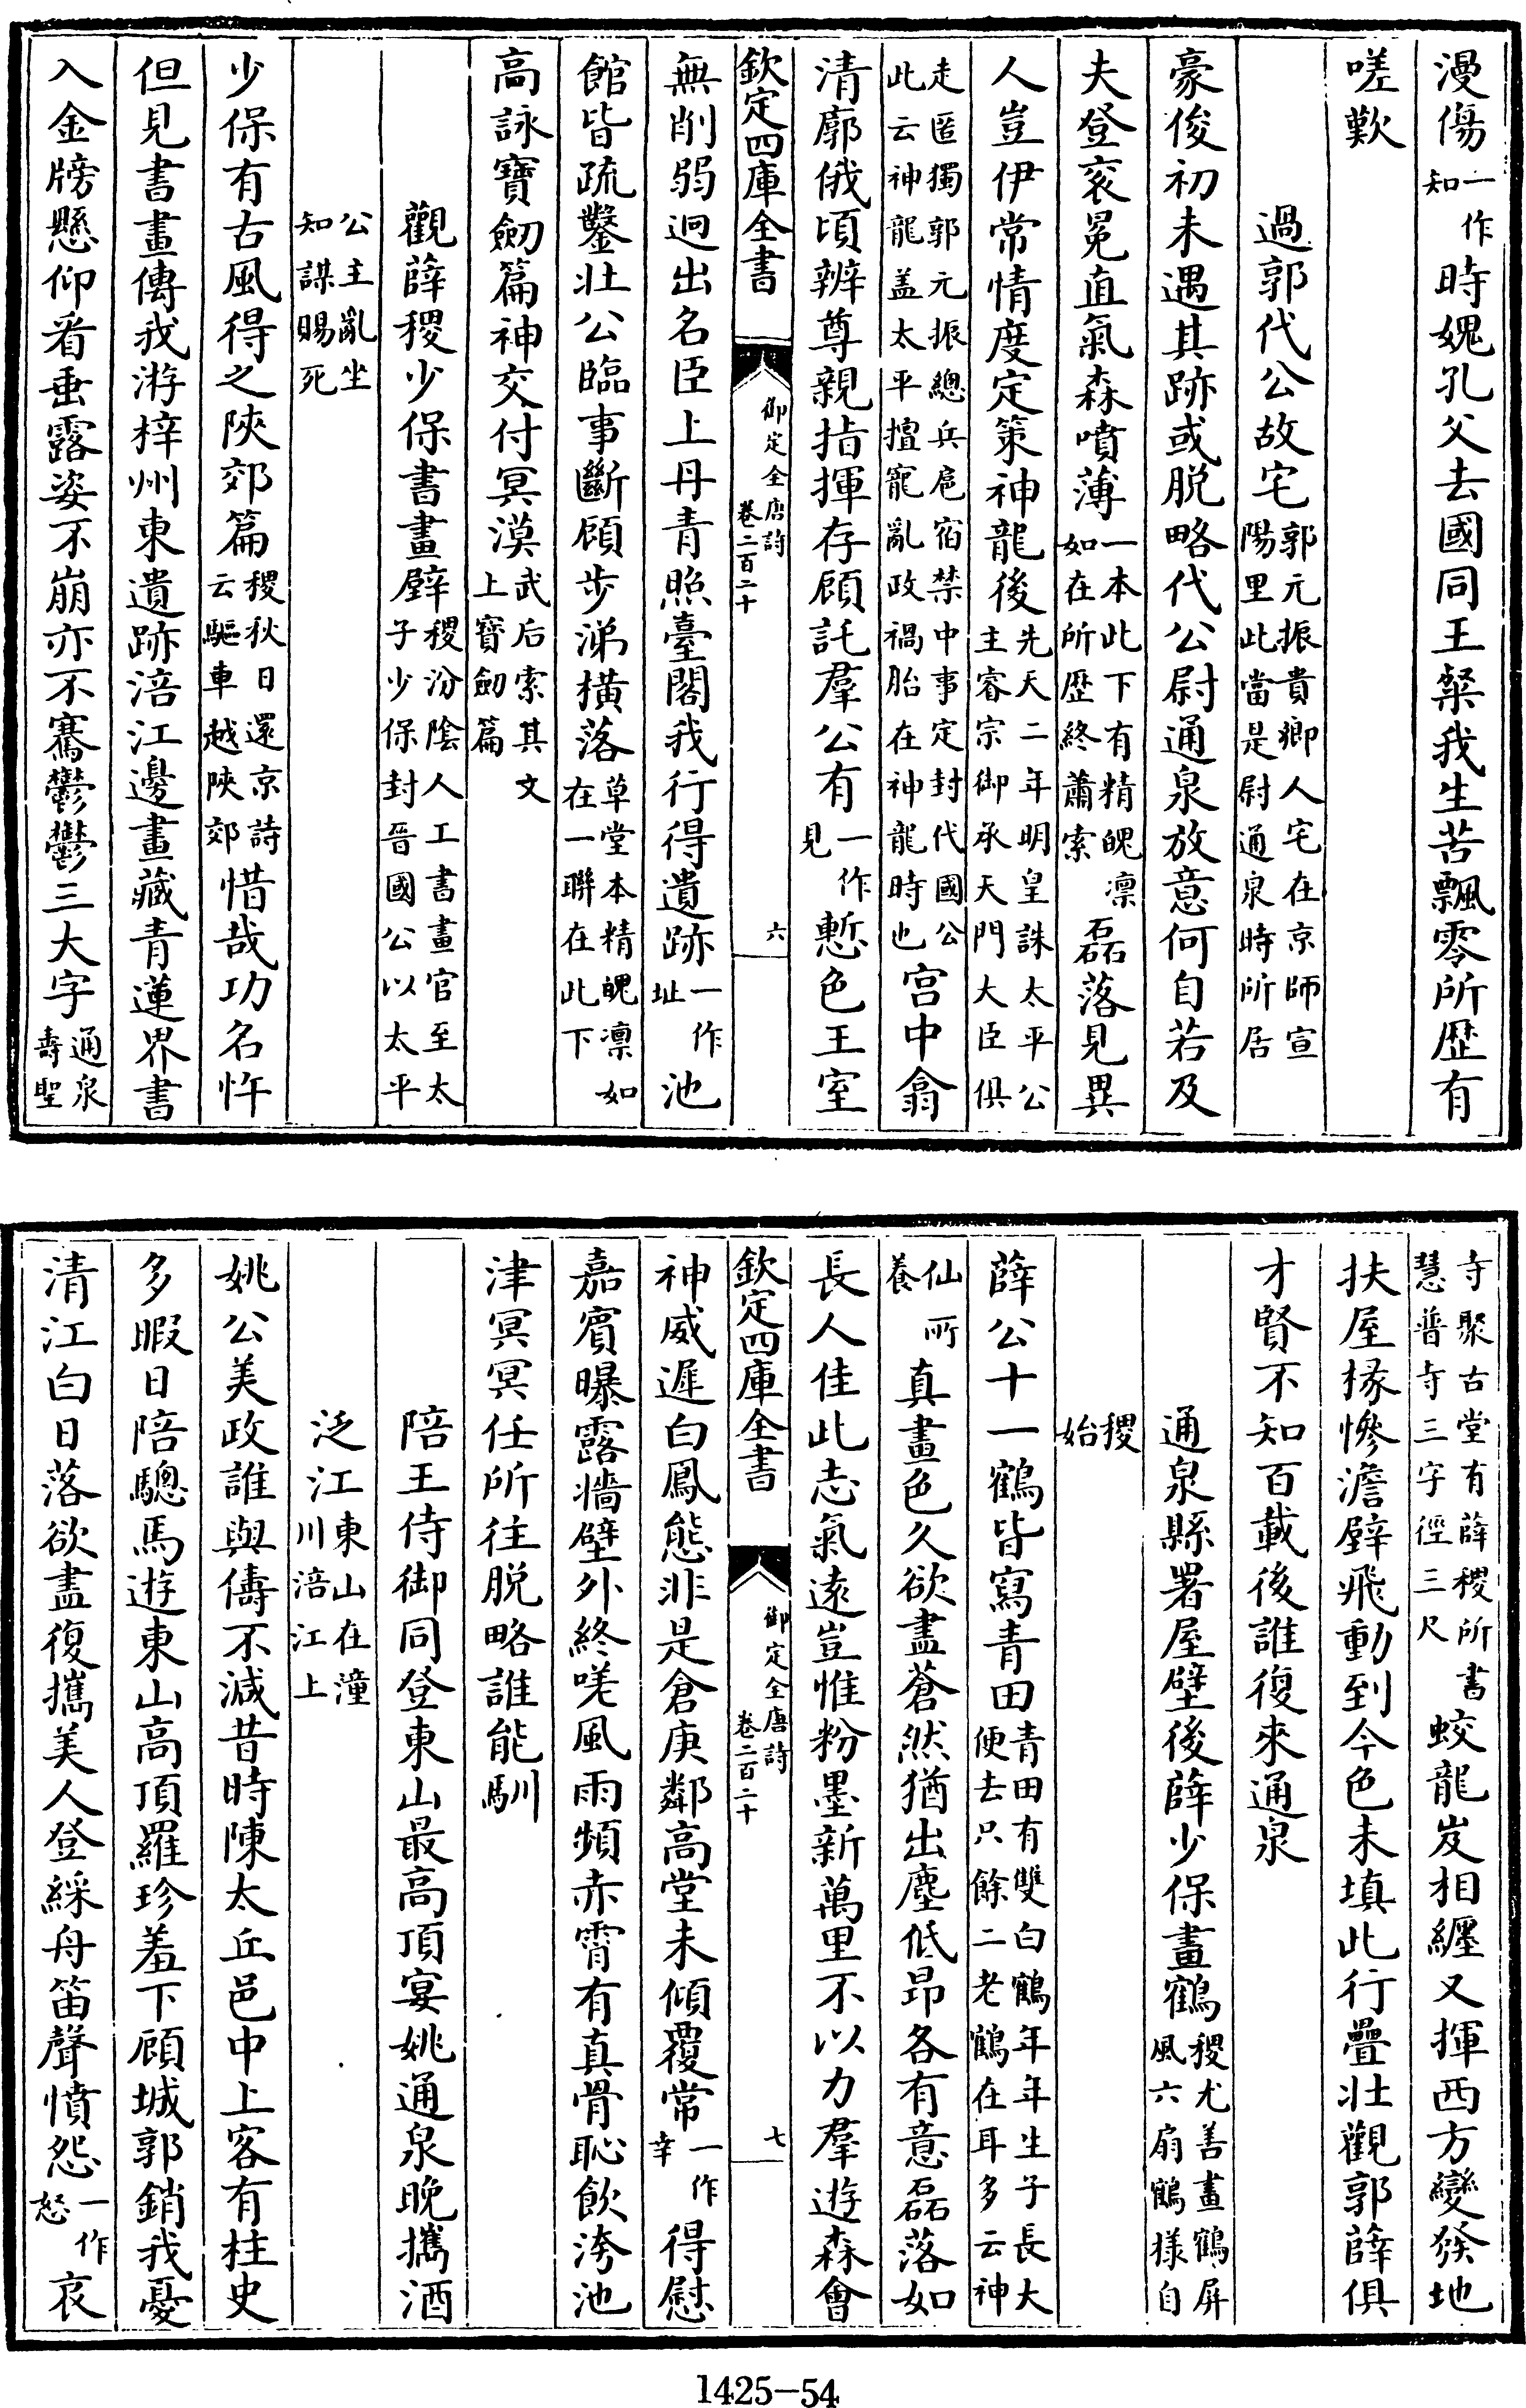 漫傷一作知時媿孔父去國同王粲我生苦飄零所歷有
嗟歎
過郭代公故宅郭元振貴鄉人宅在京師宣陽里此當是尉通泉時所居
豪俊初未遇其跡或脱略代公尉通泉放意何自若及
夫登衮冕直氣森噴薄一本此下有精魄凛如在所歷終蕭索磊落見異
人豈伊常情度定策神龍後先天二年明皇誅太平公主睿宗御承天門大臣俱
走匿獨郭元振總兵扈宿禁中事定封代國公此云神龍盖太平擅寵亂政禍胎在神龍時也宫中翕
清廓俄頃辨尊親指揮存顧託羣公有一作見慙色王室
欽定四庫全書 御定全唐詩 卷二百二十 六
無削弱迥出名臣上丹青照臺閣我行得遺跡一作址池
館皆疏鑿壯公臨事斷顧步涕横落草堂本精魄凛如在一聯在此下
高詠寶劒篇神交付冥漠武后索其文上寶劒篇
觀薛稷少保書畫壁稷汾陰人工書畫官至太子少保封晉國公以太平
公主亂坐知謀賜死
少保有古風得之陝郊篇稷秋日還京詩云驅車越陝郊惜哉功名忤
但見書畫傳我游梓州東遺跡涪江邊畫藏青蓮界書
入金牓懸仰看垂露姿不崩亦不騫鬱鬱三大字通泉壽聖
寺聚古堂有薛稷所書慧普寺三字徑三尺蛟龍岌相纒又揮西方變發地
扶屋椽慘澹壁飛動到今色未填此行疊壯觀郭薛俱
才賢不知百載後誰復來通泉
通泉縣署屋壁後薛少保畫鶴稷尤善畫鶴屏風六扇鶴様自
稷始
薛公十一鶴皆寫青田青田有雙白鶴年年生子長大便去只餘二老鶴在耳多云神
仙所養真畫色久欲盡蒼然猶出塵低昂各有意磊落如
長人佳此志氣遠豈惟粉墨新萬里不以力羣遊森會
欽定四庫全書 御定全唐詩 卷二百二十 七
神威遲白鳳態非是倉庚鄰高堂未傾覆常一作幸得慰
嘉賓曝露牆壁外終嗟風雨頻赤霄有真骨恥飲洿池
津冥冥任所往脱略誰能馴
陪王侍御同登東山最高頂宴姚通泉晚攜酒
泛江東山在潼川涪江上
姚公美政誰與儔不減昔時陳太丘邑中上客有柱史
多暇日陪驄馬遊東山高頂羅珍羞下顧城郭銷我憂
清江白日落欲盡復攜美人登綵舟笛聲憤怨一作怒哀
1425-54